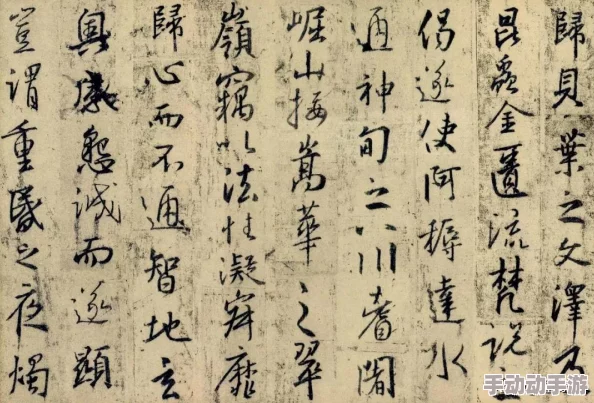 歸貝葉之文澤及
昆蟲金匱流梵說之
偈遂使阿耨達水
通神甸之八川耆闍
崛山接嵩華之翠
嶺竊以法性凝寂靡
歸心而不通智地玄
奧感懇誠而遂顯
豈謂重昏之夜燭
手动动手游